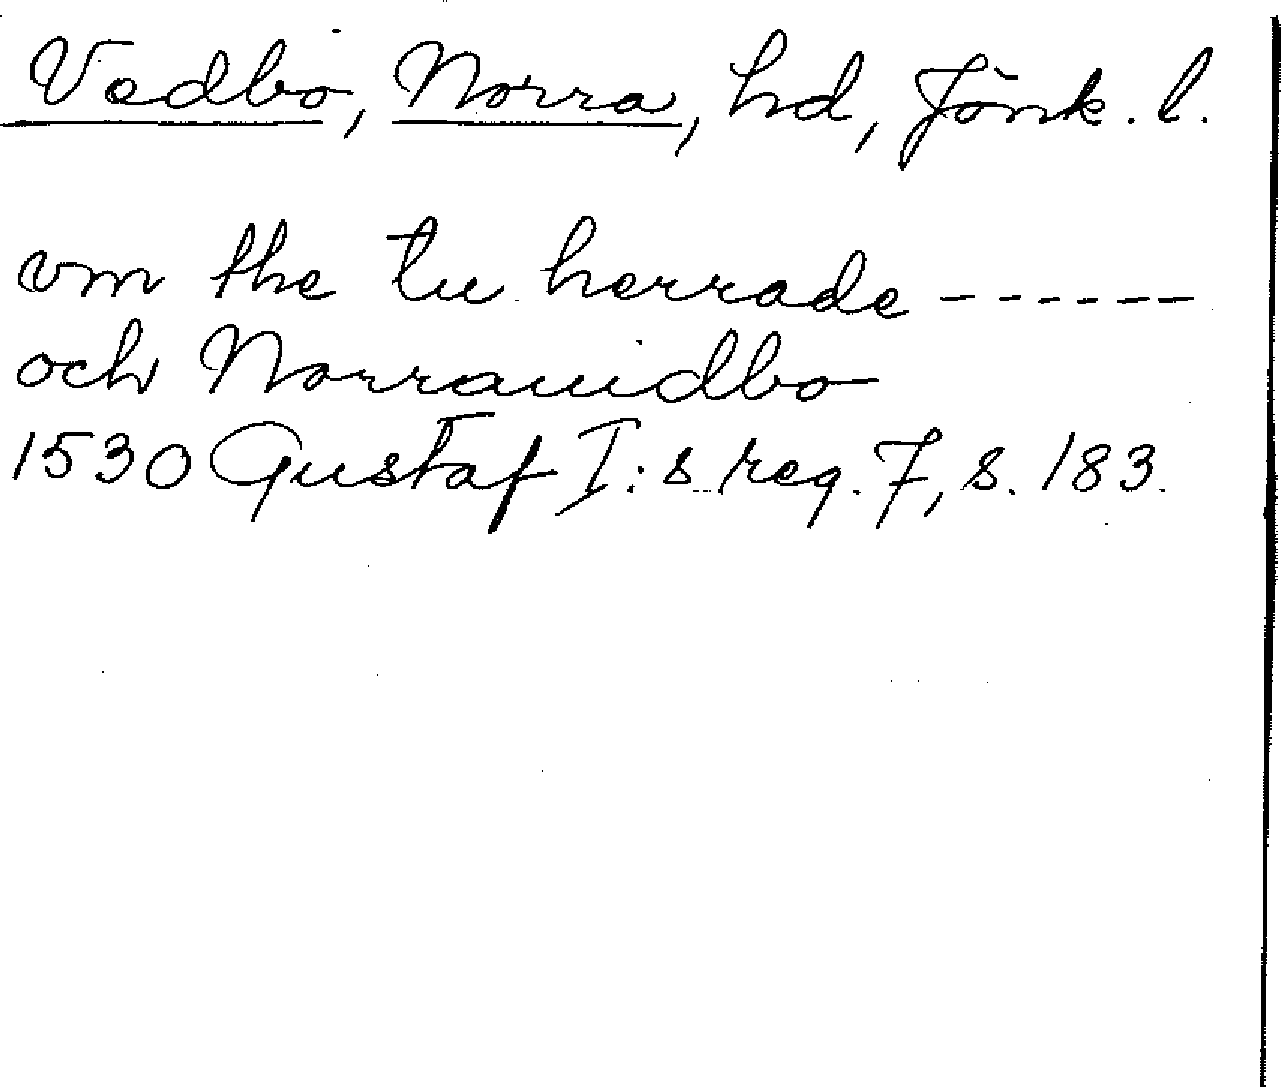 Vedbo, Norra, hd, Jönk. l.
vm the tu herrade ------
och Norrauidbo
1530 Gustaf I:s reg. 7, s. 183.